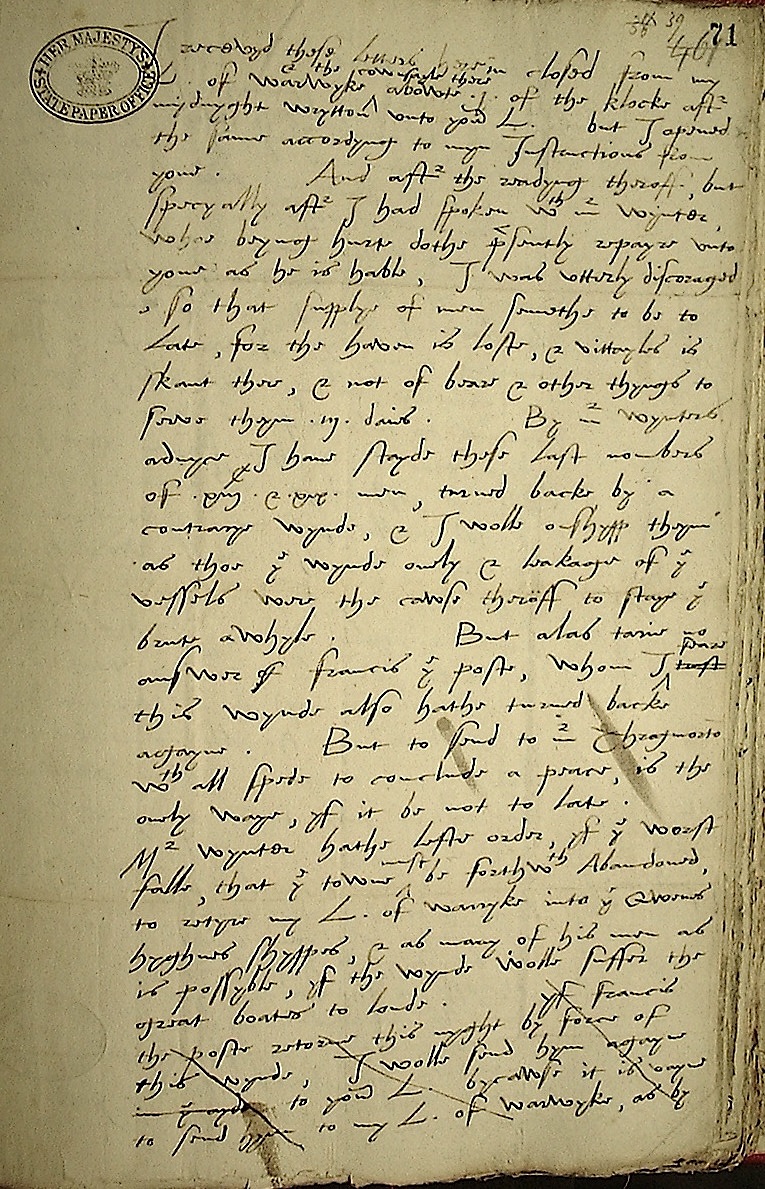 71
39
461
HER MAJESTY'S STATE PAPER OFFICE
I receavyd these letters herein closed from my
L. of Warwyke & the cownsayle there abowte .j. of the klocke aftr
mydnyght wrytton unto your L. but I opened
the same accordyng to myn Instructions from
youe . And aftr the readyng theroff, but
specyally aftr I had spoken wth mr Wynter,
whoe beyng hurte dothe presently repayre unto
youe as he is hable, I was utterly discoraged
so that supplye of men semethe to be to
Late, for the haven is loste, & vittayles is
skant there, & not of beare & other thyngs to
serve theym .iij. daies . By mr Wynters
advyce I have stayde these last nombers
of men, turned backe by a
contrarye wynde, & I wolle theym
as thoe ye wynde onely & leakage of ye
vessels were the cawse theroff to staye ye
brute awhyle . But alas tarie no
answer of Francis ye poste, whom I feare
this wynde also hathe turned backe
agayne . But to send to mr Thragmorto
wth all spede to conclude a peace, is the
onely waye, yf it be not to late .
Mr Wynter hathe lefte order, yf ye worst
falle, that ye towne must be forthwth Abandoned,
to retyre my L. of Warwyke into ye Qwenes
hyghnes shyppes, & as many of his men as
is possyble, yf the wynde wolle suffer the
great boates to londe . yf Francis
the poste retorne this nyght by force of
this wynde, I wolle send hym agayne
to your L. bycawse it is vayne
to send to my L. of Warwyke, as by